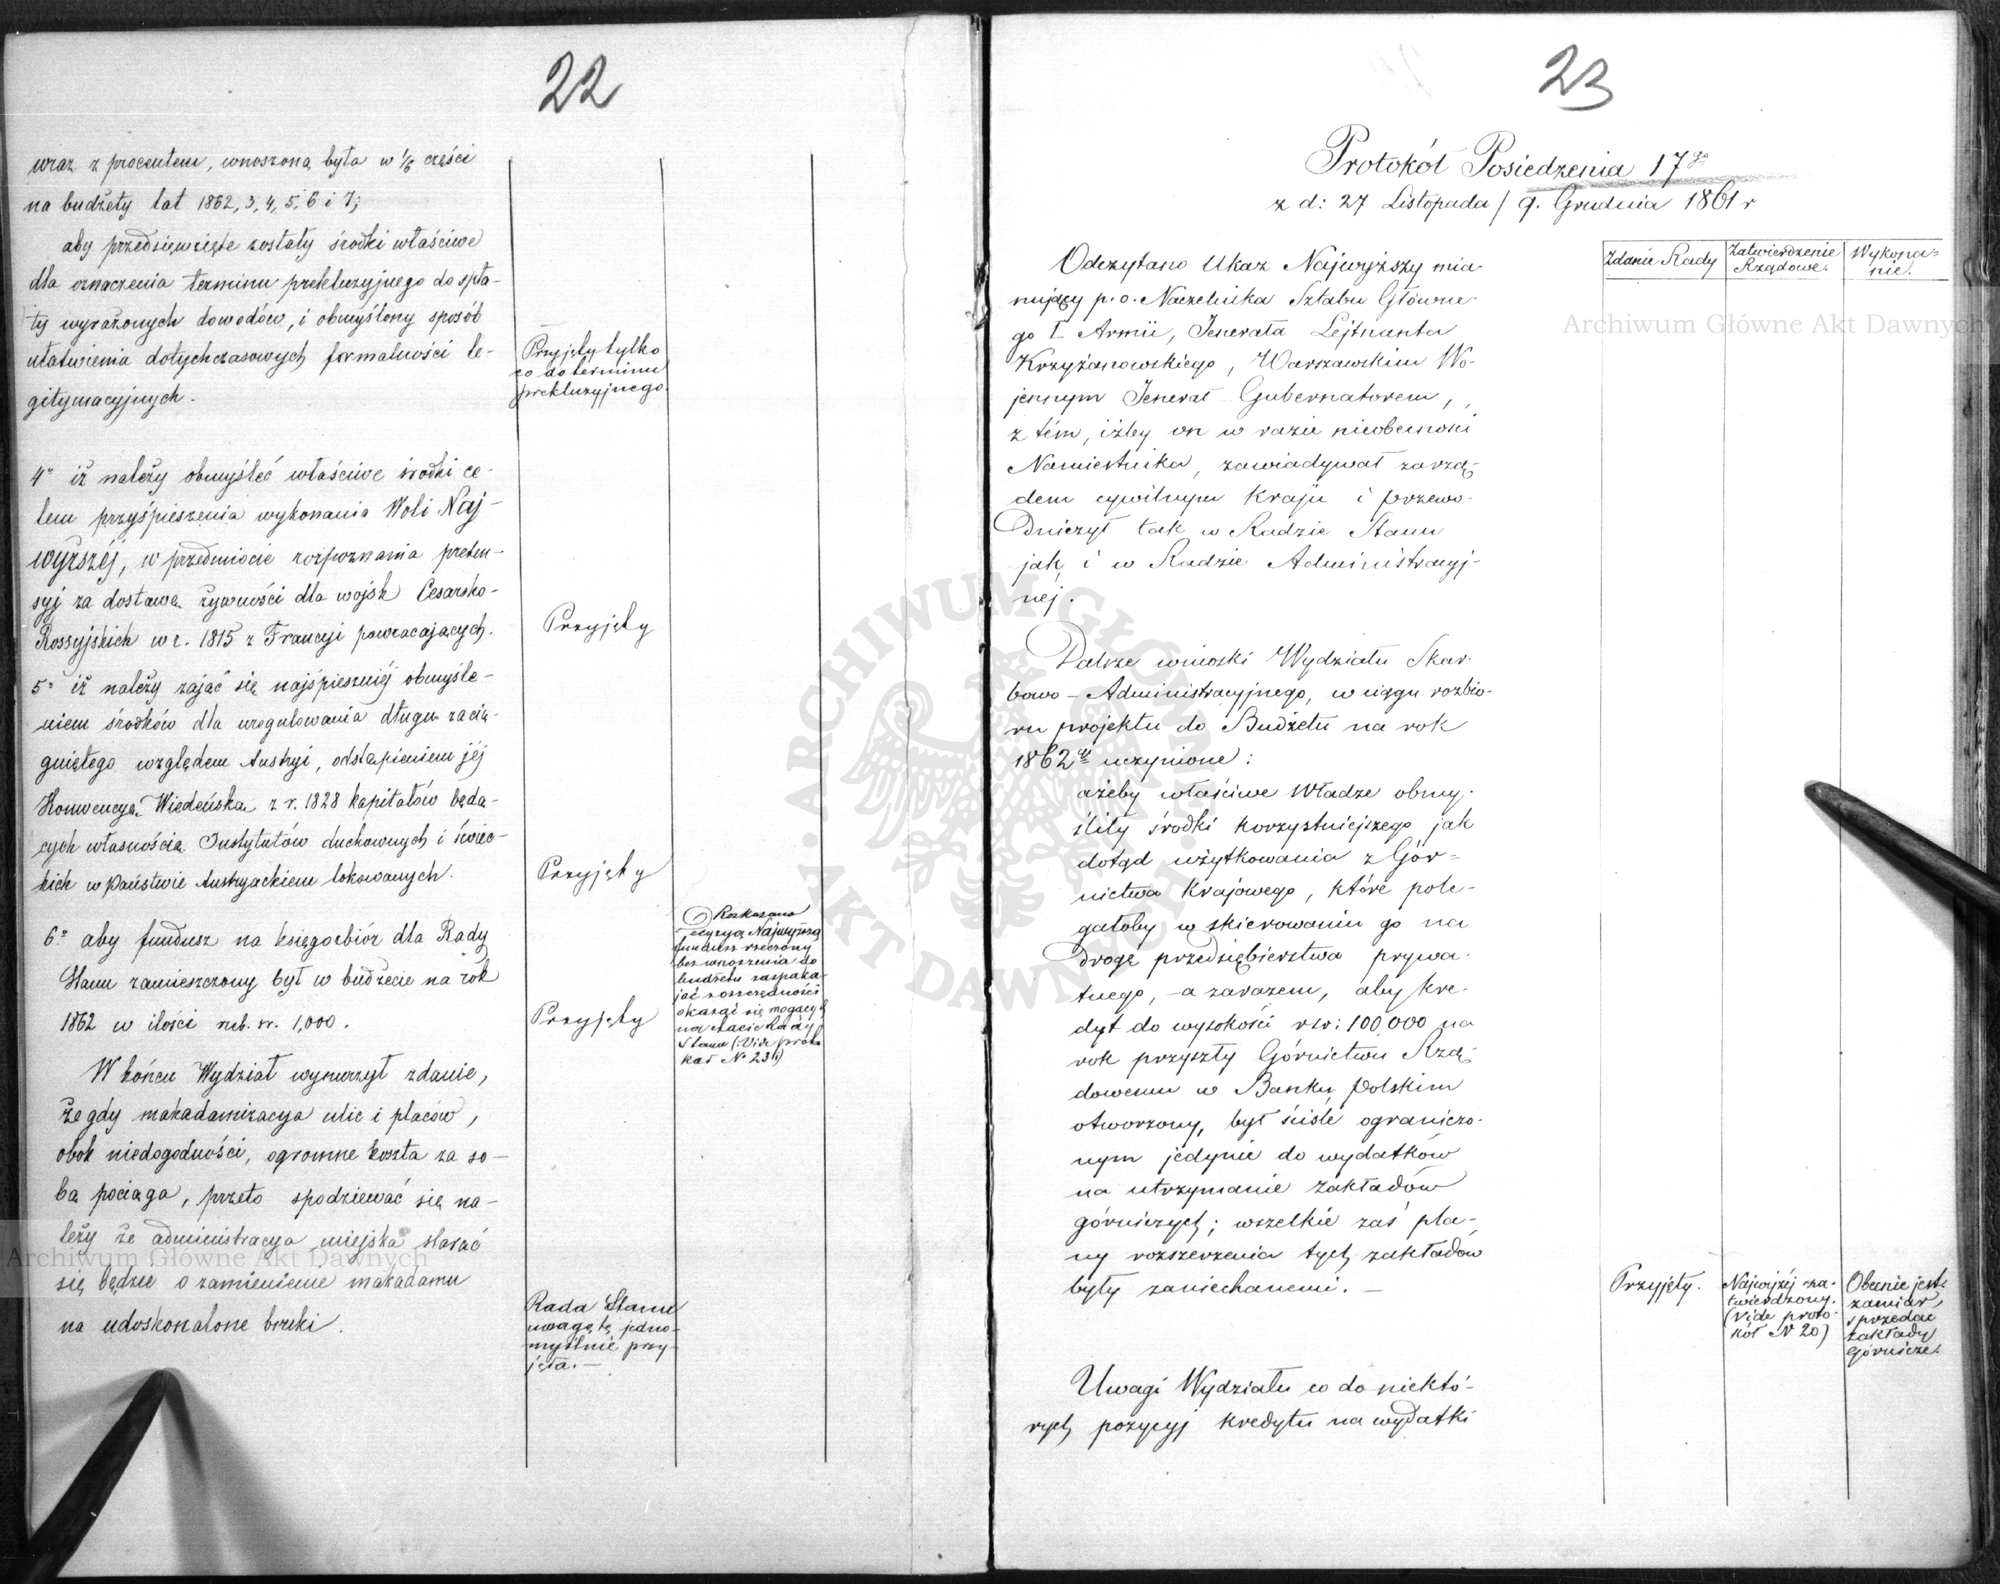 22
wraz z procentem, wnoszoną była w 1/6 części
na budżety lat 1862, 3, 4, 5, 6 i 7;
aby przedsięwzięte zostały środki właściwe
dla oznaczenia terminu prekluzyjnego do spła-
ty wyrażonych dowodów, i obmyślony sposób
ułatwienia dotychczasowych formalności le-
gitymacyjnych.
Przyjęty tylko
co do terminu
prekluzyjnego.
4° iż należy obmyśleć właściwe środki ce-
lem przyśpieszenia wykonania Woli Naj-
wyższéj, w przedmiocie rozpoznania preten-
syj za dostawę żywności dla wojsk Cesarsko-
Rossyjskich w r. 1815 z Francyi powracających.
Przyjęty
5° iż należy zająć się najśpieszniéj obmyśle-
niem środków dla uregulowania długu zacią-
gniętego względem Austryi, odstąpieniem jéj
Konwencyą Wiedeńską z r. 1828 kapitałów będą-
cych własnością Instytutów duchownych i świec-
kich w Państwie Austryackiem lokowanych.
Przyjęty
6° aby fundusz na księgozbiór dla Rady
Stanu zamieszczony był w budżecie na rok
1862 w ilości rub. sr. 1,000.
Przyjęty
Rozkazano
decyzyą Najwyższą
fundusz rzeczony
bez wnoszenia do
budżetu zaspaka-
jać z oszczędności
okazać się mogących
na etacie Rady
Stanu (:Vide proto-
kół N° 23:)
W końcu Wydział wynurzył zdanie,
że gdy makadamizacya ulic i placów,
obok niedogodności, ogromne koszta za so-
bą pociąga, przeto spodziewać się na-
leży że administracya miejska starać
się będzie o zamienienie makadamu
na udoskonalone bruki.
Rada Stanu
uwagę tę jedno-
myślnie przy-
jęła.—
23
Protokół Posiedzenia 17go
z d: 27 Listopada / 9. Grudnia 1861 r
Zdanie Rady
Zatwierdzenie
Rządowe.
Wykona-
nie.
Odczytano Ukaz Najwyższy mia-
nujący p. o. Naczelnika Sztabu Główne-
go I Armii, Jenerała Lejtnanta
Krzyżanowskiego, Warszawskim Wo-
jennym Jenerał Gubernatorem,
z tém, iżby on w razie nieobecności
Namiestnika, zawiadywał zarzą-
dem cywilnym Kraju i przewo-
dniczył tak w Radzie Stanu
jak i w Radzie Administracyj-
néj.
Dalsze wnioski Wydziału Skar-
bowo-Administracyjnego, w ciągu rozbio-
ru projektu do Budżetu na rok
1862 uczynione:
ażeby właściwe Władze obmy-
śliły środki korzystniejszego jak
dotąd użytkowania z Gór-
nictwa Krajowego, które pole-
gałoby w skierowaniu go na
drogę przedsiębierstwa prywa-
tnego, — a zarazem, aby kre-
dyt do wysokości rsr: 100,000 na
rok przyszły Górnictwu Rzą-
dowemu w Banku Polskim
otworzony, był ściśle ograniczo-
nym jedynie do wydatków
na utrzymanie zakładów
górniczych; wszelkie zaś pla-
ny rozszerzenia tych zakładów
były zaniechanemi. —
Przyjęty.
Najwyżéj za-
twierdzony.
(Vide proto-
kół N 20)
Obecnie jest
zamiar
sprzedać
zakłady
Górnicze.
Uwagi Wydziału co do niektó-
rych pozycyj kredytu na wydatki
Archiwum Główne Akt Dawnych
Archiwum Główne Akt Dawnych
ARCHIWUM GŁÓWNE AKT DAWNYCH